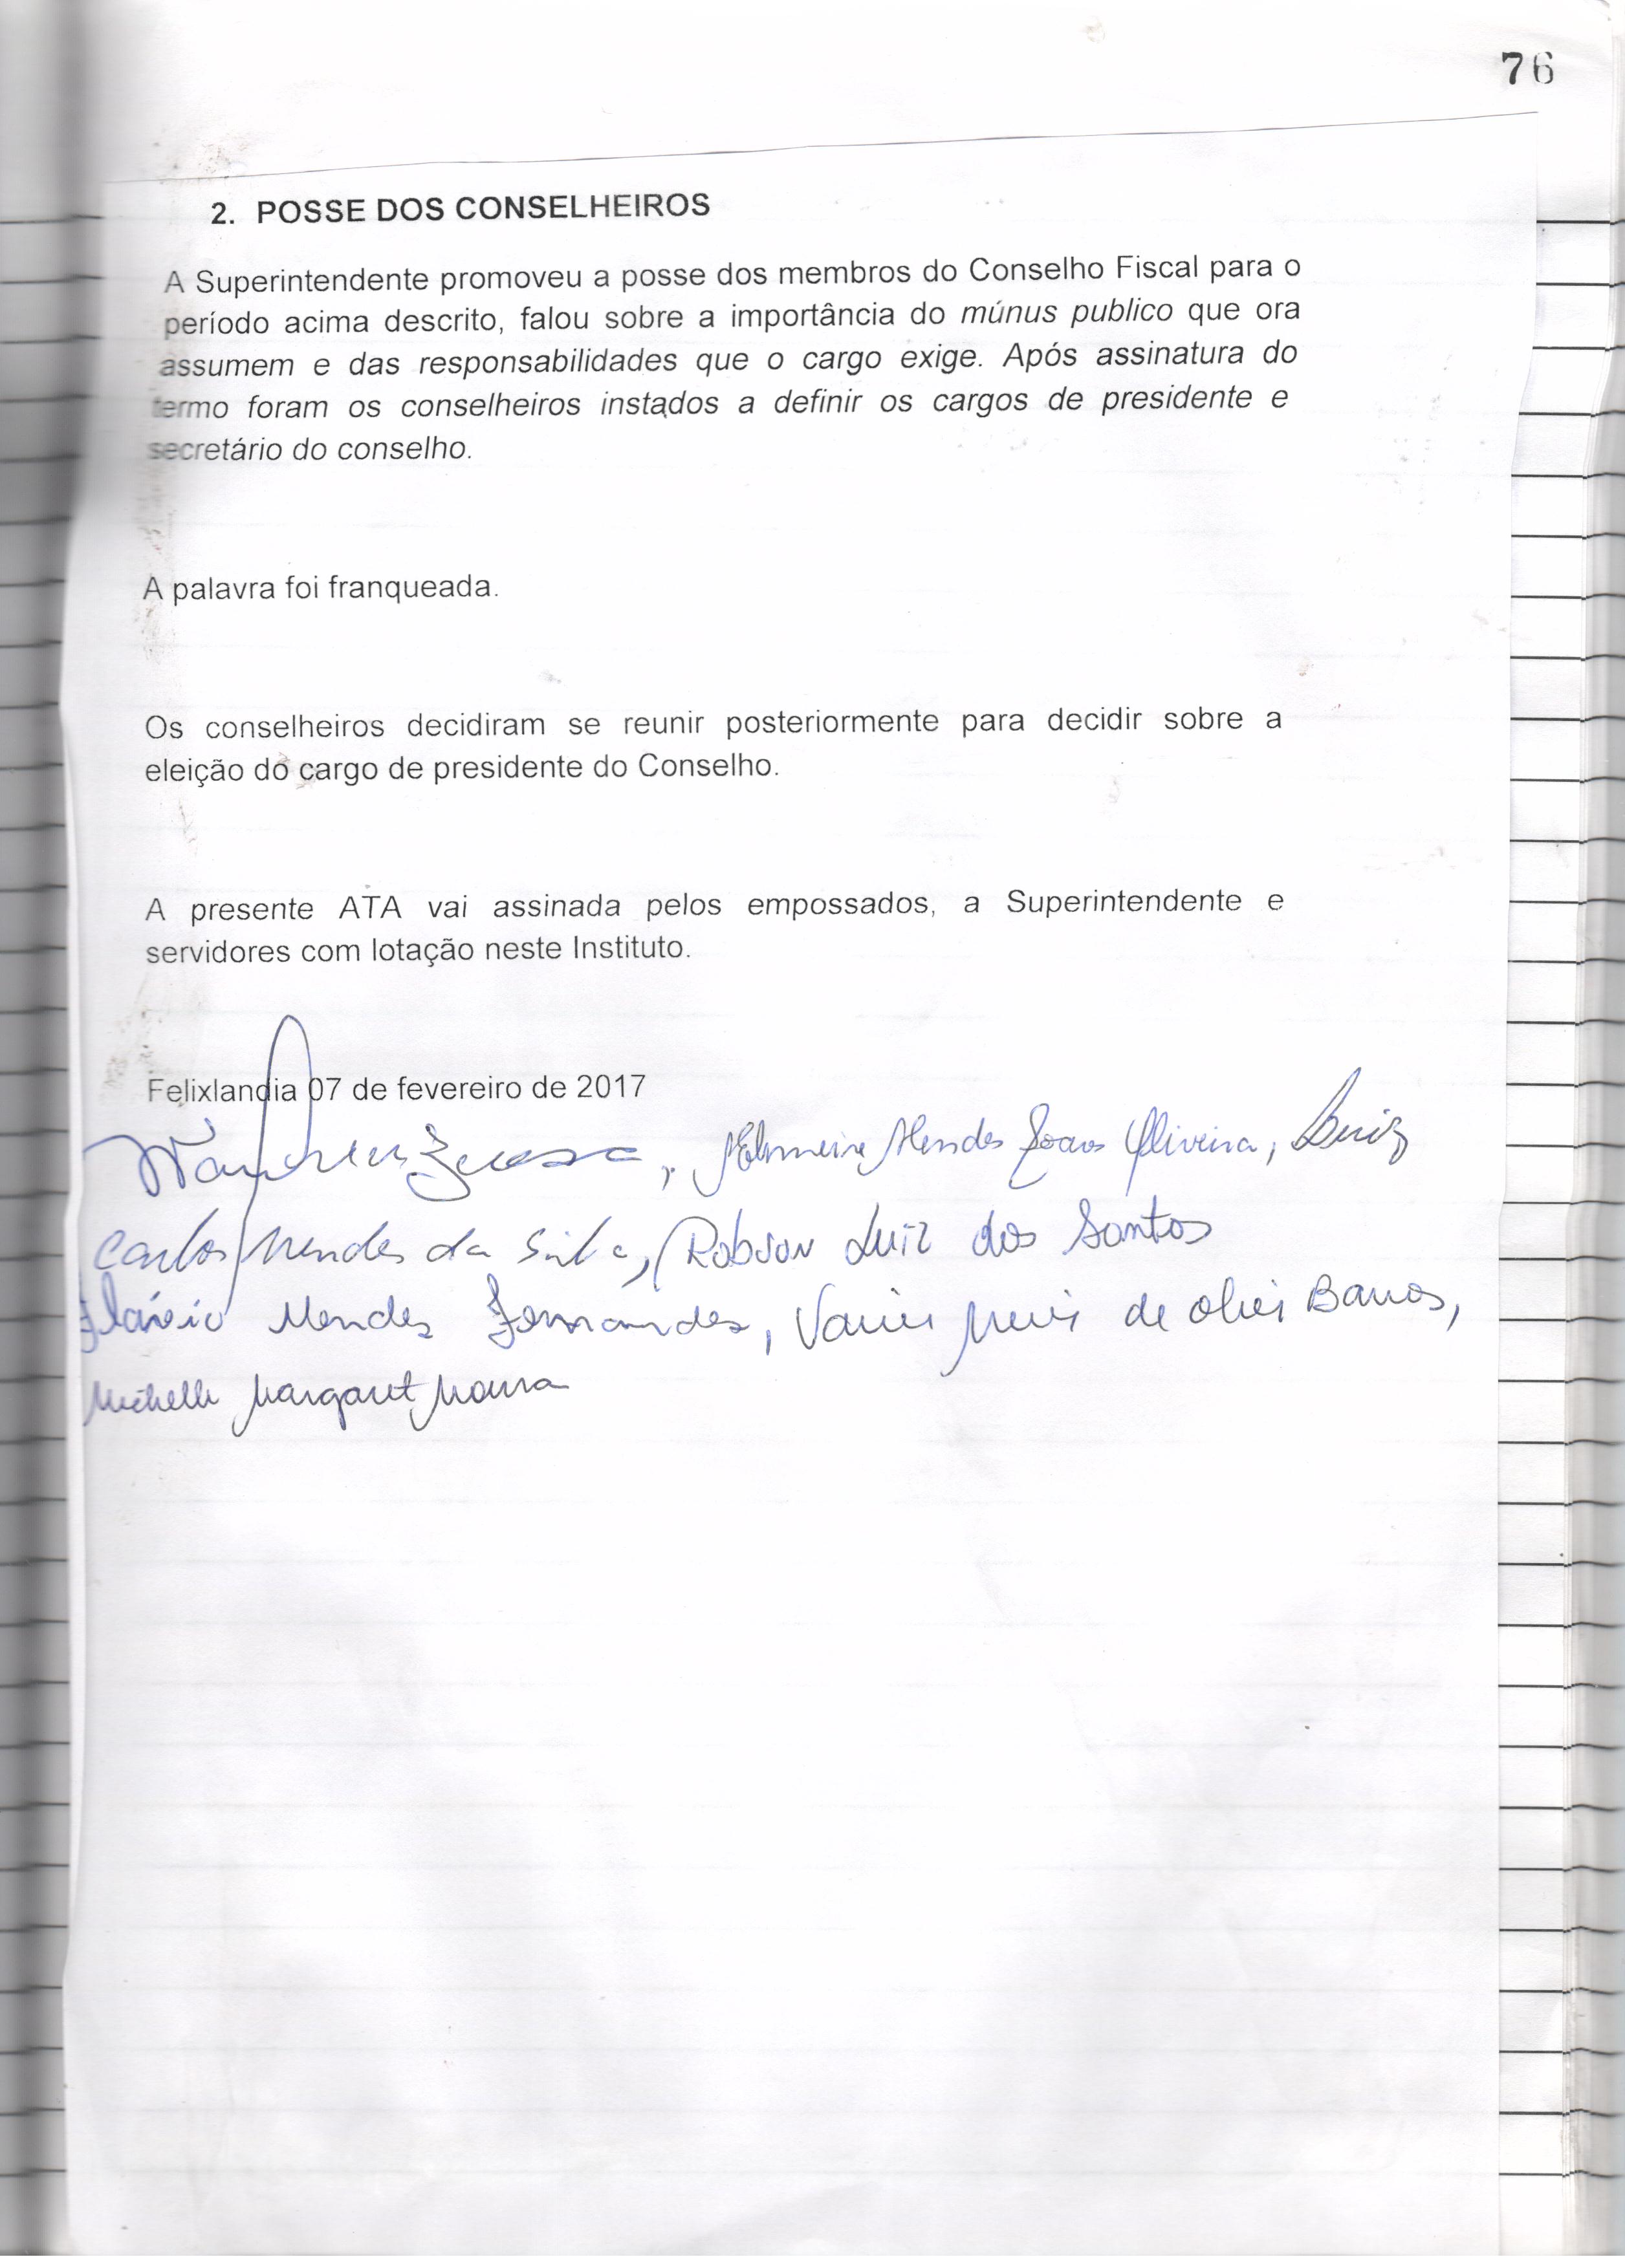 76
2. POSSE DOS CONSELHEIROS
A Superintendente promoveu a posse dos membros do Conselho Fiscal para o
período acima descrito, falou sobre a importância do múnus publico que ora
assumem e das responsabilidades que o cargo exige. Após assinatura do
termo foram os conselheiros instados a definir os cargos de presidente e
secretário do conselho.
A palavra foi franqueada.
Os conselheiros decidiram se reunir posteriormente para decidir sobre a
eleição do cargo de presidente do Conselho.
A presente ATA vai assinada pelos empossados, a Superintendente e
servidores com lotação neste Instituto.
Felixlandia 07 de fevereiro de 2017
Mendes Soares Oliveira, Luiz
Carlos Mendes da Silva, Robson Luiz dos Santos
Flávio Mendes Fernandes, de Barros,
Michelle Margaret Moura